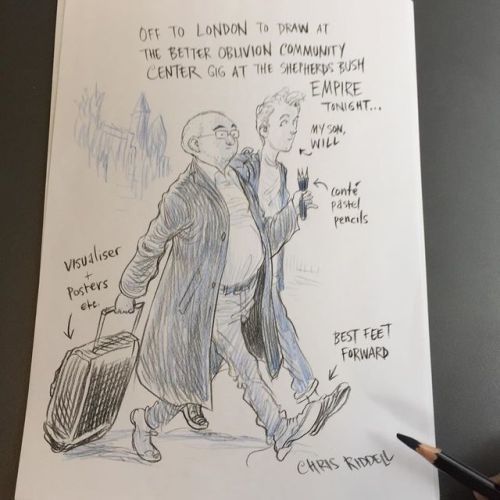 OFF TO LONDON TO DRAW AT
THE BETTER OBLIVION COMMUNITY
CENTER GIG AT THE SHEPHERDS BUSH
EMPIRE
TONIGHT...
MY SON,
WILL
conté
pastel
pencils
visualiser
+
posters
etc.
BEST FEET
FORWARD
CHRIS RIDDELL